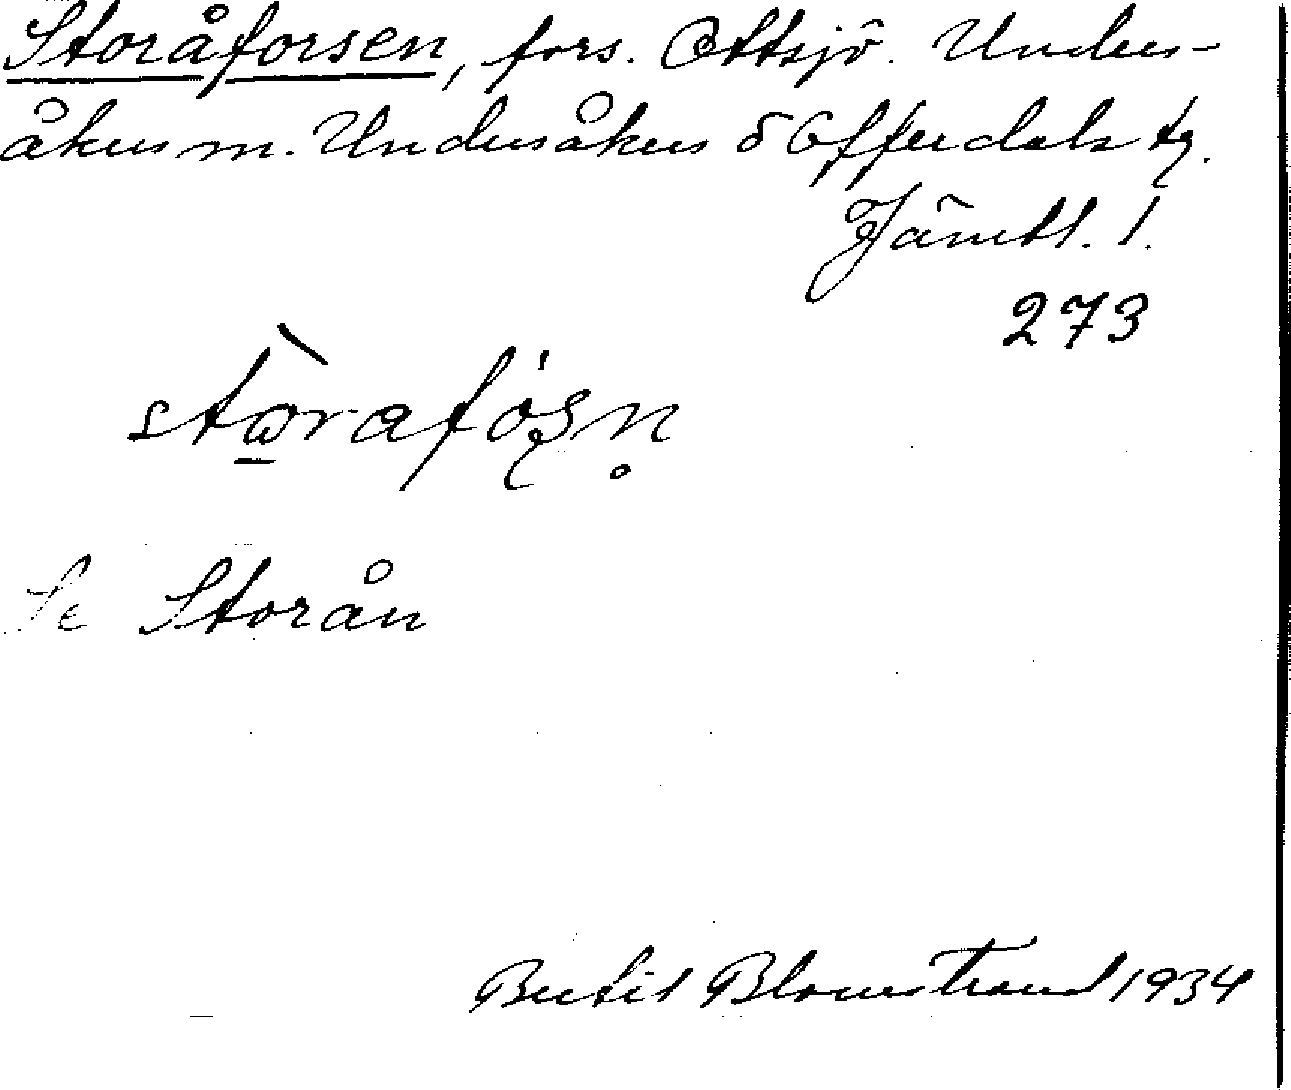 Storåforsen, fors. Ottsjö. Unders-
åkers m. Undersåkers o Offerdals tg.
Jämtl. l.
273
stòrafósn̥
Se Storån
Bertil Blomstrand 1934